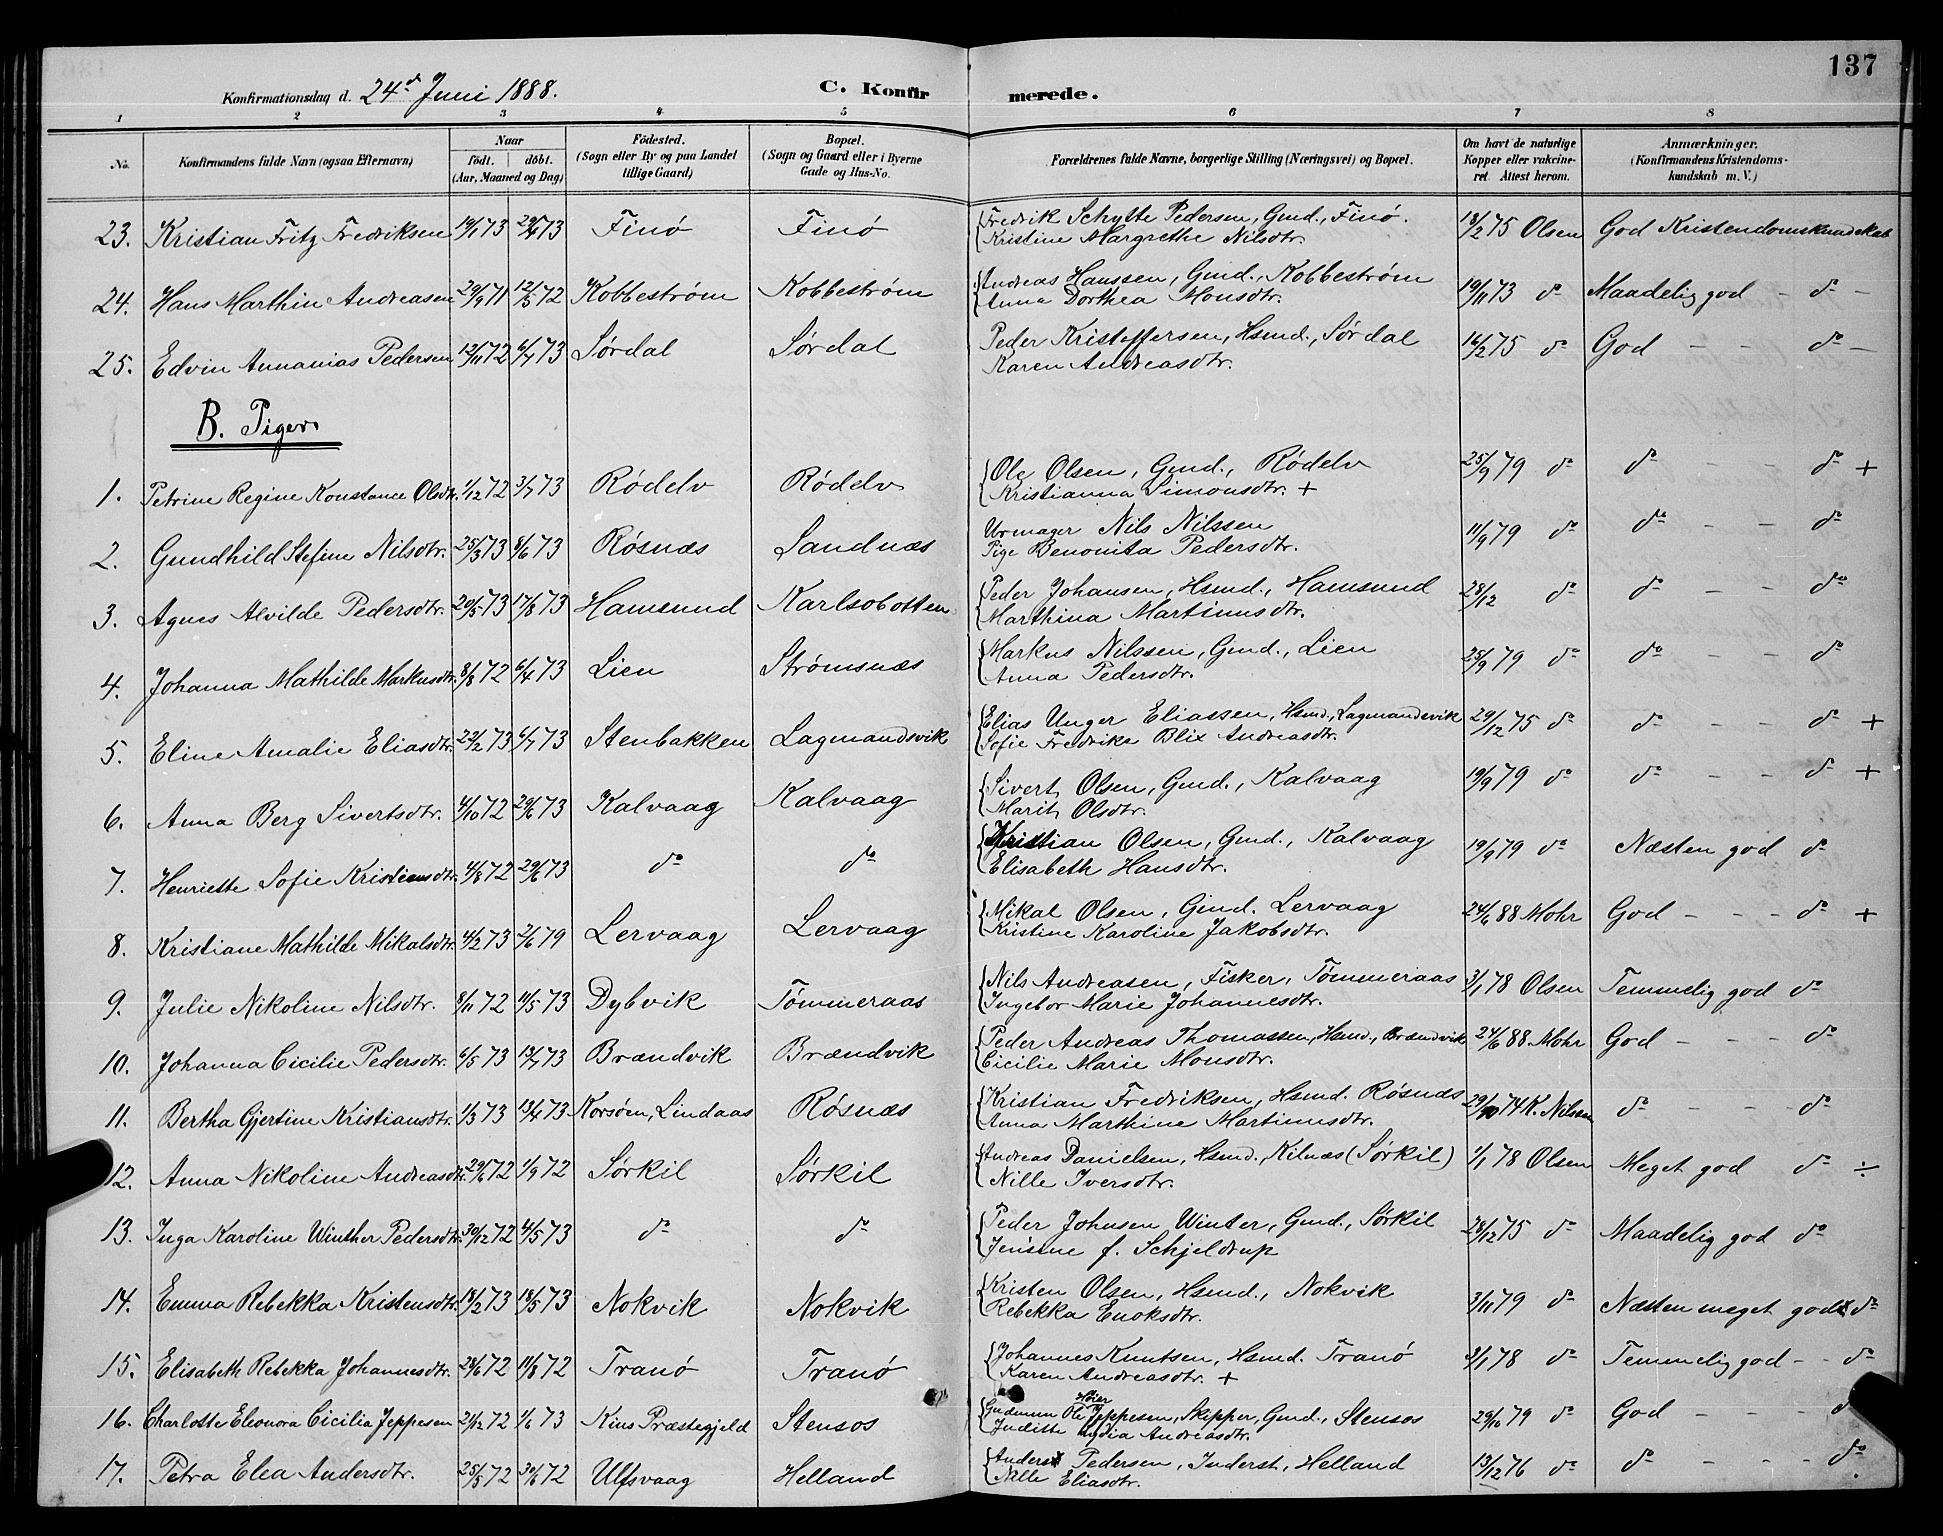 137
Konfirmationsdag d. 24de Juni 1888. C. Konfirmerede.
1 2 3 4 5 6 7 8
No. Konfirmandens fulde Navn (ogsaa Efternavn) Naar født. døbt. (Aar, Maaned og Dag) Födested. (Sogn eller By og paa Landet tillige Gaard) Bopæl. (Sogn og Gaard eller i Byerne Gade og Hus-No. Forældrenes fulde Navne, borgerlige Stilling (Næringsvei) og Bopæl. Om havt de naturlige Kopper eller vakcineret. Attest herom. Anmærkninger. (Konfirmandens Kristendomskundskab m. V.)
23. Kristian Fritz Fredriksen 19/1 73 29/4 73 Finö Finö {Fredrik Schytte Pedersen, Gmd., Finö. 18/2 75 Olsen God Kristendomskundskab
{Kristine Margrethe Nilsdtr.
24. Hans Marthin Andreasen 29/9 71 12/5 72 Kobbestrøm Kobbestrøm {Andreas Hanssen, Gmd., Kobbestrøm 19/11 73 do Maadelig god - do -
{Anna Dorthea Monsdtr.
25. Edvin Annanias Pedersen 12/11 72 6/7 73 Sørdal Sørdal Peder Kristoffersen, Hsmd., Sørdal 16/2 75 do God - - do -
Karen Andreasdtr.
B. Piger
1. Petrine Regine Konstance Olsdtr. 1/12 72 3/7 73 Rödelv Rödelv {Ole Olsen, Gmd., Rödelv 25/9 79 do do - - do +
{Kristianna Simonsdtr. +
2. Gundhild Stefine Nilsdtr. 25/3 73 8/6 73 Røsnæs Sandnæs Urmager Nils Nilssen 11/9 79 do do - - do
Pige Benonita Pedersdtr.
3. Agnes Alvilde Pedersdtr. 20/5 73 17/8 73 Hamsund Karlsobotten {Peder Johansen, Hsmd., Hamsund 28/12 do do - - do
{Marthina Martinusdtr.
4. Johanna Mathilde Markusdtr. 8/8 72 6/4 73 Lien Strømsnæs {Markus Nilssen, Gmd., Lien 25/9 79 do do - - do
{Anna Pedersdtr.
5. Eline Amalie Eliasdtr. 22/2 73 6/7 73 Stenbakken Lagmandsvik {Elias Unger Eliassen, Hsmd., Lagmandsvik 29/12 75 do do - - do +
{Sofie Fredrike Blix Andreasdtr.
6. Anna Berg Sivertsdtr. 4/10 72 29/6 73 Kalvaag Kalvaag {Sivert Olsen, Gmd., Kalvaag 19/9 79 do do - - do +
{Marit Olsdtr.
7. Henriette Sofie Kristiansdtr. 4/8 72 29/6 73 do do {Kristian Olsen, Gmd., Kalvaag 19/9 79 do Næsten god do
{Elisabeth Hansdtr.
8. Kristiane Mathilde Mikalsdtr. 4/2 73 2/6 79 Lervaag Lervaag {Mikal Olsen, Gmd. Lervaag 24/6 88 Mohr God - - - do +
{Kristine Karoline Jakobsdtr.
9. Julie Nikoline Nilsdtr. 8/11 72 11/5 73 Dybvik Tömmeraas {Nils Andreasen, Fisker, Tömmeraas 3/1 78 Olsen Temmelig god do
{Ingebor Marie Johannesdtr.
10. Johanna Cicilie Pedersdtr. 6/5 73 13/7 73 Brændvik Brændvik {Peder Andreas Thomassen, Hsmd., Brændvik 24/6 88 Mohr God - - - do
{Cicilie Marie Monsdtr.
11. Bertha Gjertine Kristiansdtr. 1/3 73 13/4 73 Korsøen, Lindaas Røsnæs {Kristian Fredriksen, Hsmd. Røsnæs 29/10 74 K. Nilssen do - - - do
{Anna Marthine Martinusdtr.
12. Anna Nikoline Andreasdtr. 29/6 72 1/9 72 Sørkil Sørkil {Andreas Danielsen, Hsmd., Kilnæs (Sørkil) 1/1 78 Olsen Meget god do ÷
{Nille Iversdtr.
13. Inga Karoline Winther Pedersdtr. 30/12 72 4/5 73 do do {Peder Johnsen Winter, Gmd., Sørkil 28/12 75 do Maadelig god do
{Jensine f. Schjeldrup
14. Emma Rebekka Kristensdtr. 18/2 73 18/5 73 Nokvik Nokvik {Kristen Olsen, Hsmd., Nokvik 3/11 79 do Næsten meget god do
{Rebekka Enoksdtr.
15. Elisabeth Rebekka Johannesdtr. 28/6 72 11/8 72 Tranö Tranö {Johannes Knutsen, Hsmd. Tranö 3/1 78 do Temmelig god - - do
{Karen Andreasdtr. +
16. Charlotte Eleonora Cicilia Jeppesen 21/12 72 1/6 73 Præstegjeld Stensos {Gudmun Ole Høier Jeppesen, Skipper, Gmd., Stensos 29/10 79 do God - - - do
{Juditte Lydia Andreasdtr.
17. Petra Elea Andersdtr. 25/5 72 30/6 72 Ulfsvaag Helland {Anders Pedersen, Inderst, Helland 13/12 76 do do - - - do
{Nille Eliasdtr.